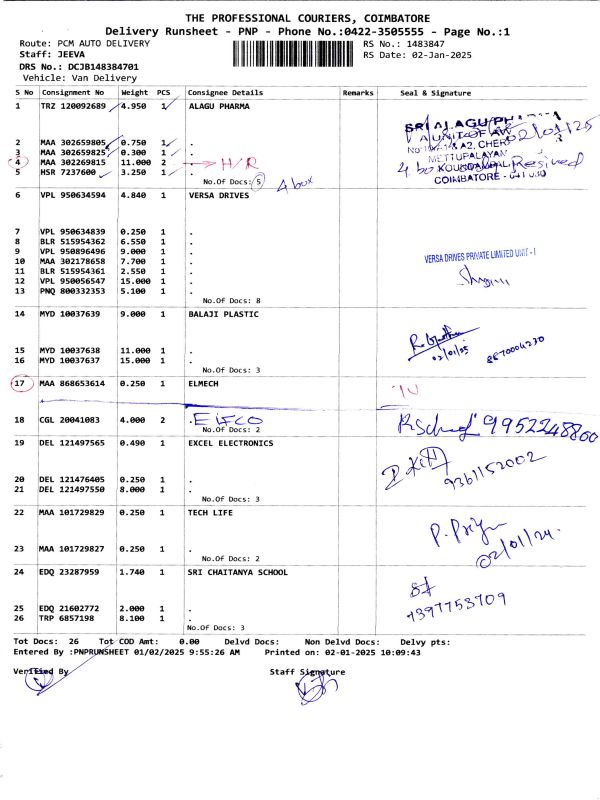 THE PROFESSIONAL COURIERS, COIMBATORE
Delivery Runsheet - PNP - Phone No.:0422-3505555 - Page No.:1
Route: PCM AUTO DELIVERY
Staff: JEEVA
RS No.: 1483847
RS Date: 02-Jan-2025
DRS No.: DCJB148384701
Vehicle: Van Delivery
S No Consignment No Weight PCS Consignee Details Remarks Seal & Signature
1 TRZ 120092689 4.950 1 ALAGU PHARMA
02/01/25
2 MAA 302659805 0.750 1 .
3 MAA 302659825 0.300 1 .
4 MAA 302269815 11.000 2 H/R
5 HSR 7237600 3.250 1 .
METTUPALAYAM
4 box Resived
No.Of Docs: 5
4 box
6 VPL 950634594 4.840 1 VERSA DRIVES
7 VPL 950634839 0.250 1 .
8 BLR 515954362 6.550 1 .
9 VPL 950896496 9.000 1 .
10 MAA 302178658 7.700 1 .
11 BLR 515954361 2.550 1 .
12 VPL 950056547 15.000 1 .
13 PNQ 800332353 5.100 1 .
VERSA DRIVES PRIVATE LIMITED UNIT - I
No.Of Docs: 8
14 MYD 10037639 9.000 1 BALAJI PLASTIC
02/01/25
8870004230
15 MYD 10037638 11.000 1 .
16 MYD 10037637 15.000 1 .
No.Of Docs: 3
17 MAA 868653614 0.250 1 ELMECH
18 CGL 20041083 4.000 2 . ELFCO
9952248800
No.Of Docs: 2
19 DEL 121497565 0.490 1 EXCEL ELECTRONICS
9361152002
20 DEL 121476405 0.250 1 .
21 DEL 121497550 8.000 1 .
No.Of Docs: 3
22 MAA 101729829 0.250 1 TECH LIFE
P. Priya
02/01/24.
23 MAA 101729827 0.250 1 .
No.Of Docs: 2
24 EDQ 23287959 1.740 1 SRI CHAITANYA SCHOOL
7397753709
25 EDQ 21602772 2.000 1 .
26 TRP 6857198 8.100 1 .
No.Of Docs: 3
Tot Docs: 26 Tot COD Amt: 0.00 Delvd Docs: Non Delvd Docs: Delvy pts:
Entered By :PNPRUNSHEET 01/02/2025 9:55:26 AM Printed on: 02-01-2025 10:09:43
Verified By
Staff Signature